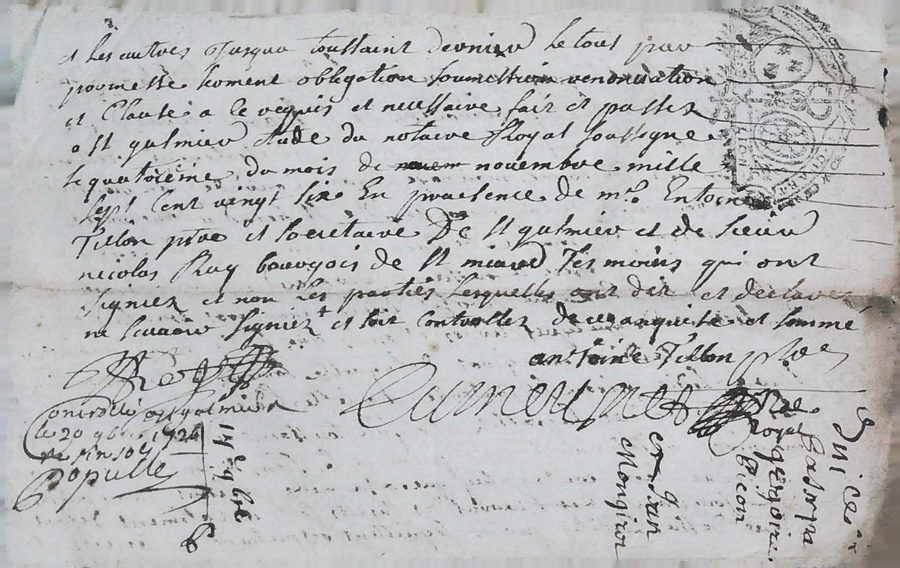 & les autres Jusqua toussaint dernier le tout par
promesse serment obligation soumission renonciation
et Clause a ce requis et necessaire fait et passer
a St galmier Etude du notaire Royal soussigne
le quatorieme du mois de novembre mille
sept Cent vingt six En praesence de mre. Entoine
Tillon ptre et secretaire De St galmier et de sieur
nicolas Roy bourgois de St Tesmoins qui ont
signier et non Les parties Lesquelles ont dit et declarer
ne scavoir signier et soit controller de ce anquite et somme
antoine Tillon ptre
Roy
Controllé a St galmier
le 20 9bre 1726
Populle
14e 9bre
et Jean
Mongirod
Royal
gregoire
Picon